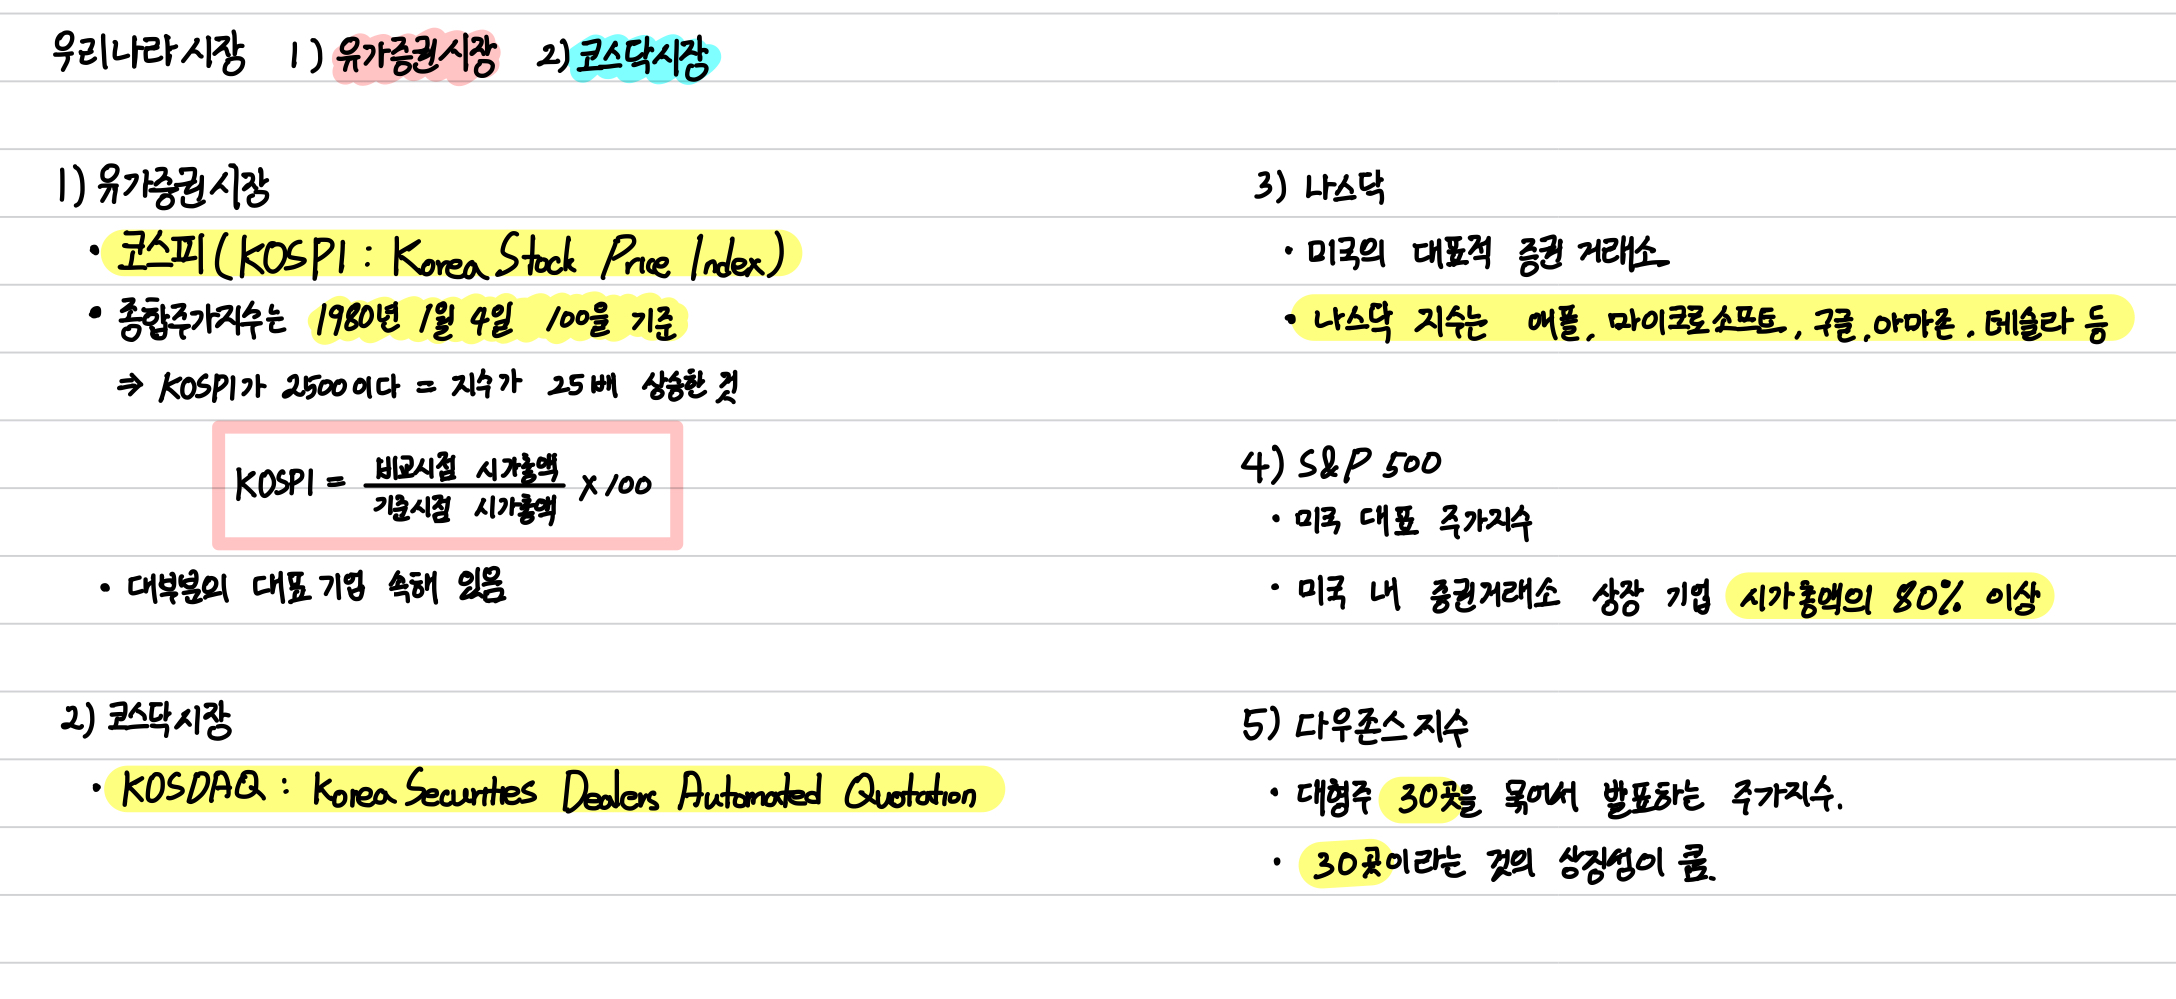 우리나라 시장 1) 유가증권시장 2) 코스닥시장
1) 유가증권시장
• 코스피 (KOSPI : Korea Stock Price Index)
• 종합주가지수는 1980년 1월 4일 100을 기준
⇒ KOSPI가 2500이다 = 지수가 25배 상승한 것
KOSPI = 비교시점 시가총액 / 기준시점 시가총액 × 100
• 대부분의 대표 기업 속해 있음
2) 코스닥시장
• KOSDAQ : Korea Securities Dealers Automated Quotation
3) 나스닥
• 미국의 대표적 증권 거래소
• 나스닥 지수는 애플, 마이크로소프트, 구글, 아마존, 테슬라 등
4) S&P 500
• 미국 대표 주가지수
• 미국 내 증권거래소 상장 기업 시가총액의 80% 이상
5) 다우존스 지수
• 대형주 30곳을 묶어서 발표하는 주가지수.
• 30곳이라는 것의 상징성이 큼.